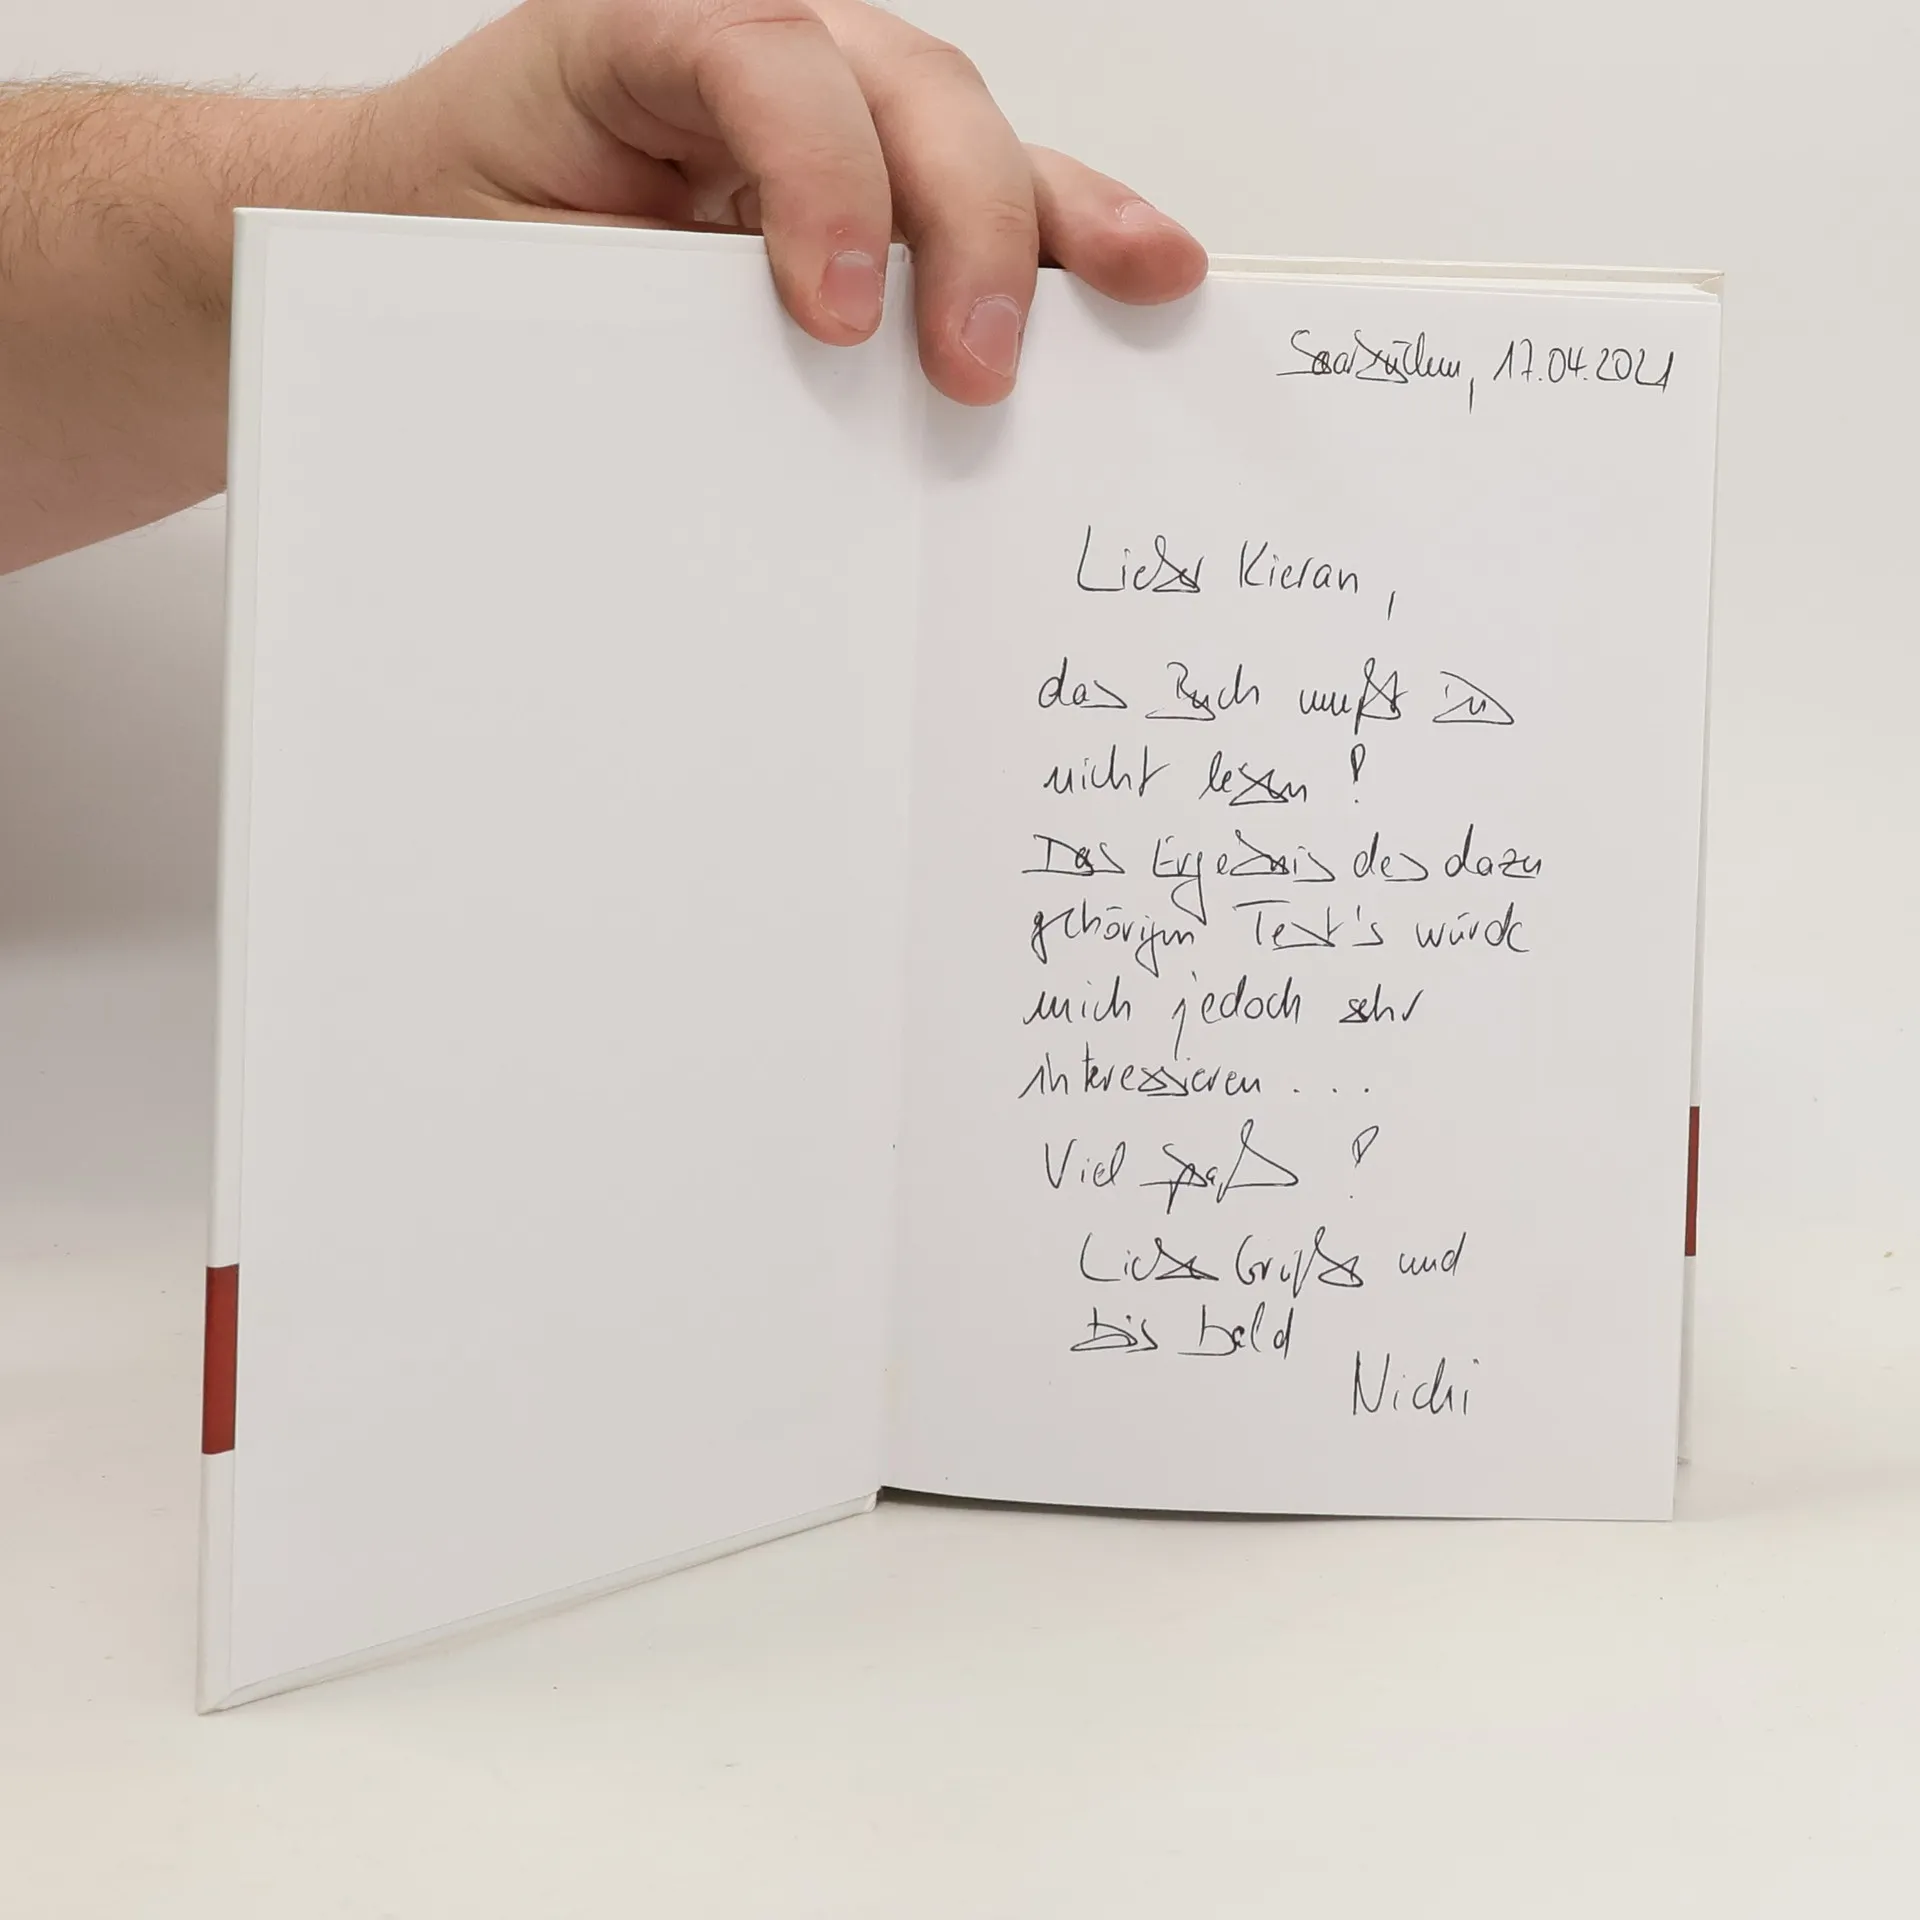 Saarbrücken, 17.04.2021
Lieber Kieran,
das Buch mußt Du
nicht lesen!
Das Ergebnis des dazu
gehörigen Test's würde
mich jedoch sehr
interessieren ...
Viel Spaß!
Liebe Grüße und
bis bald
Nichi